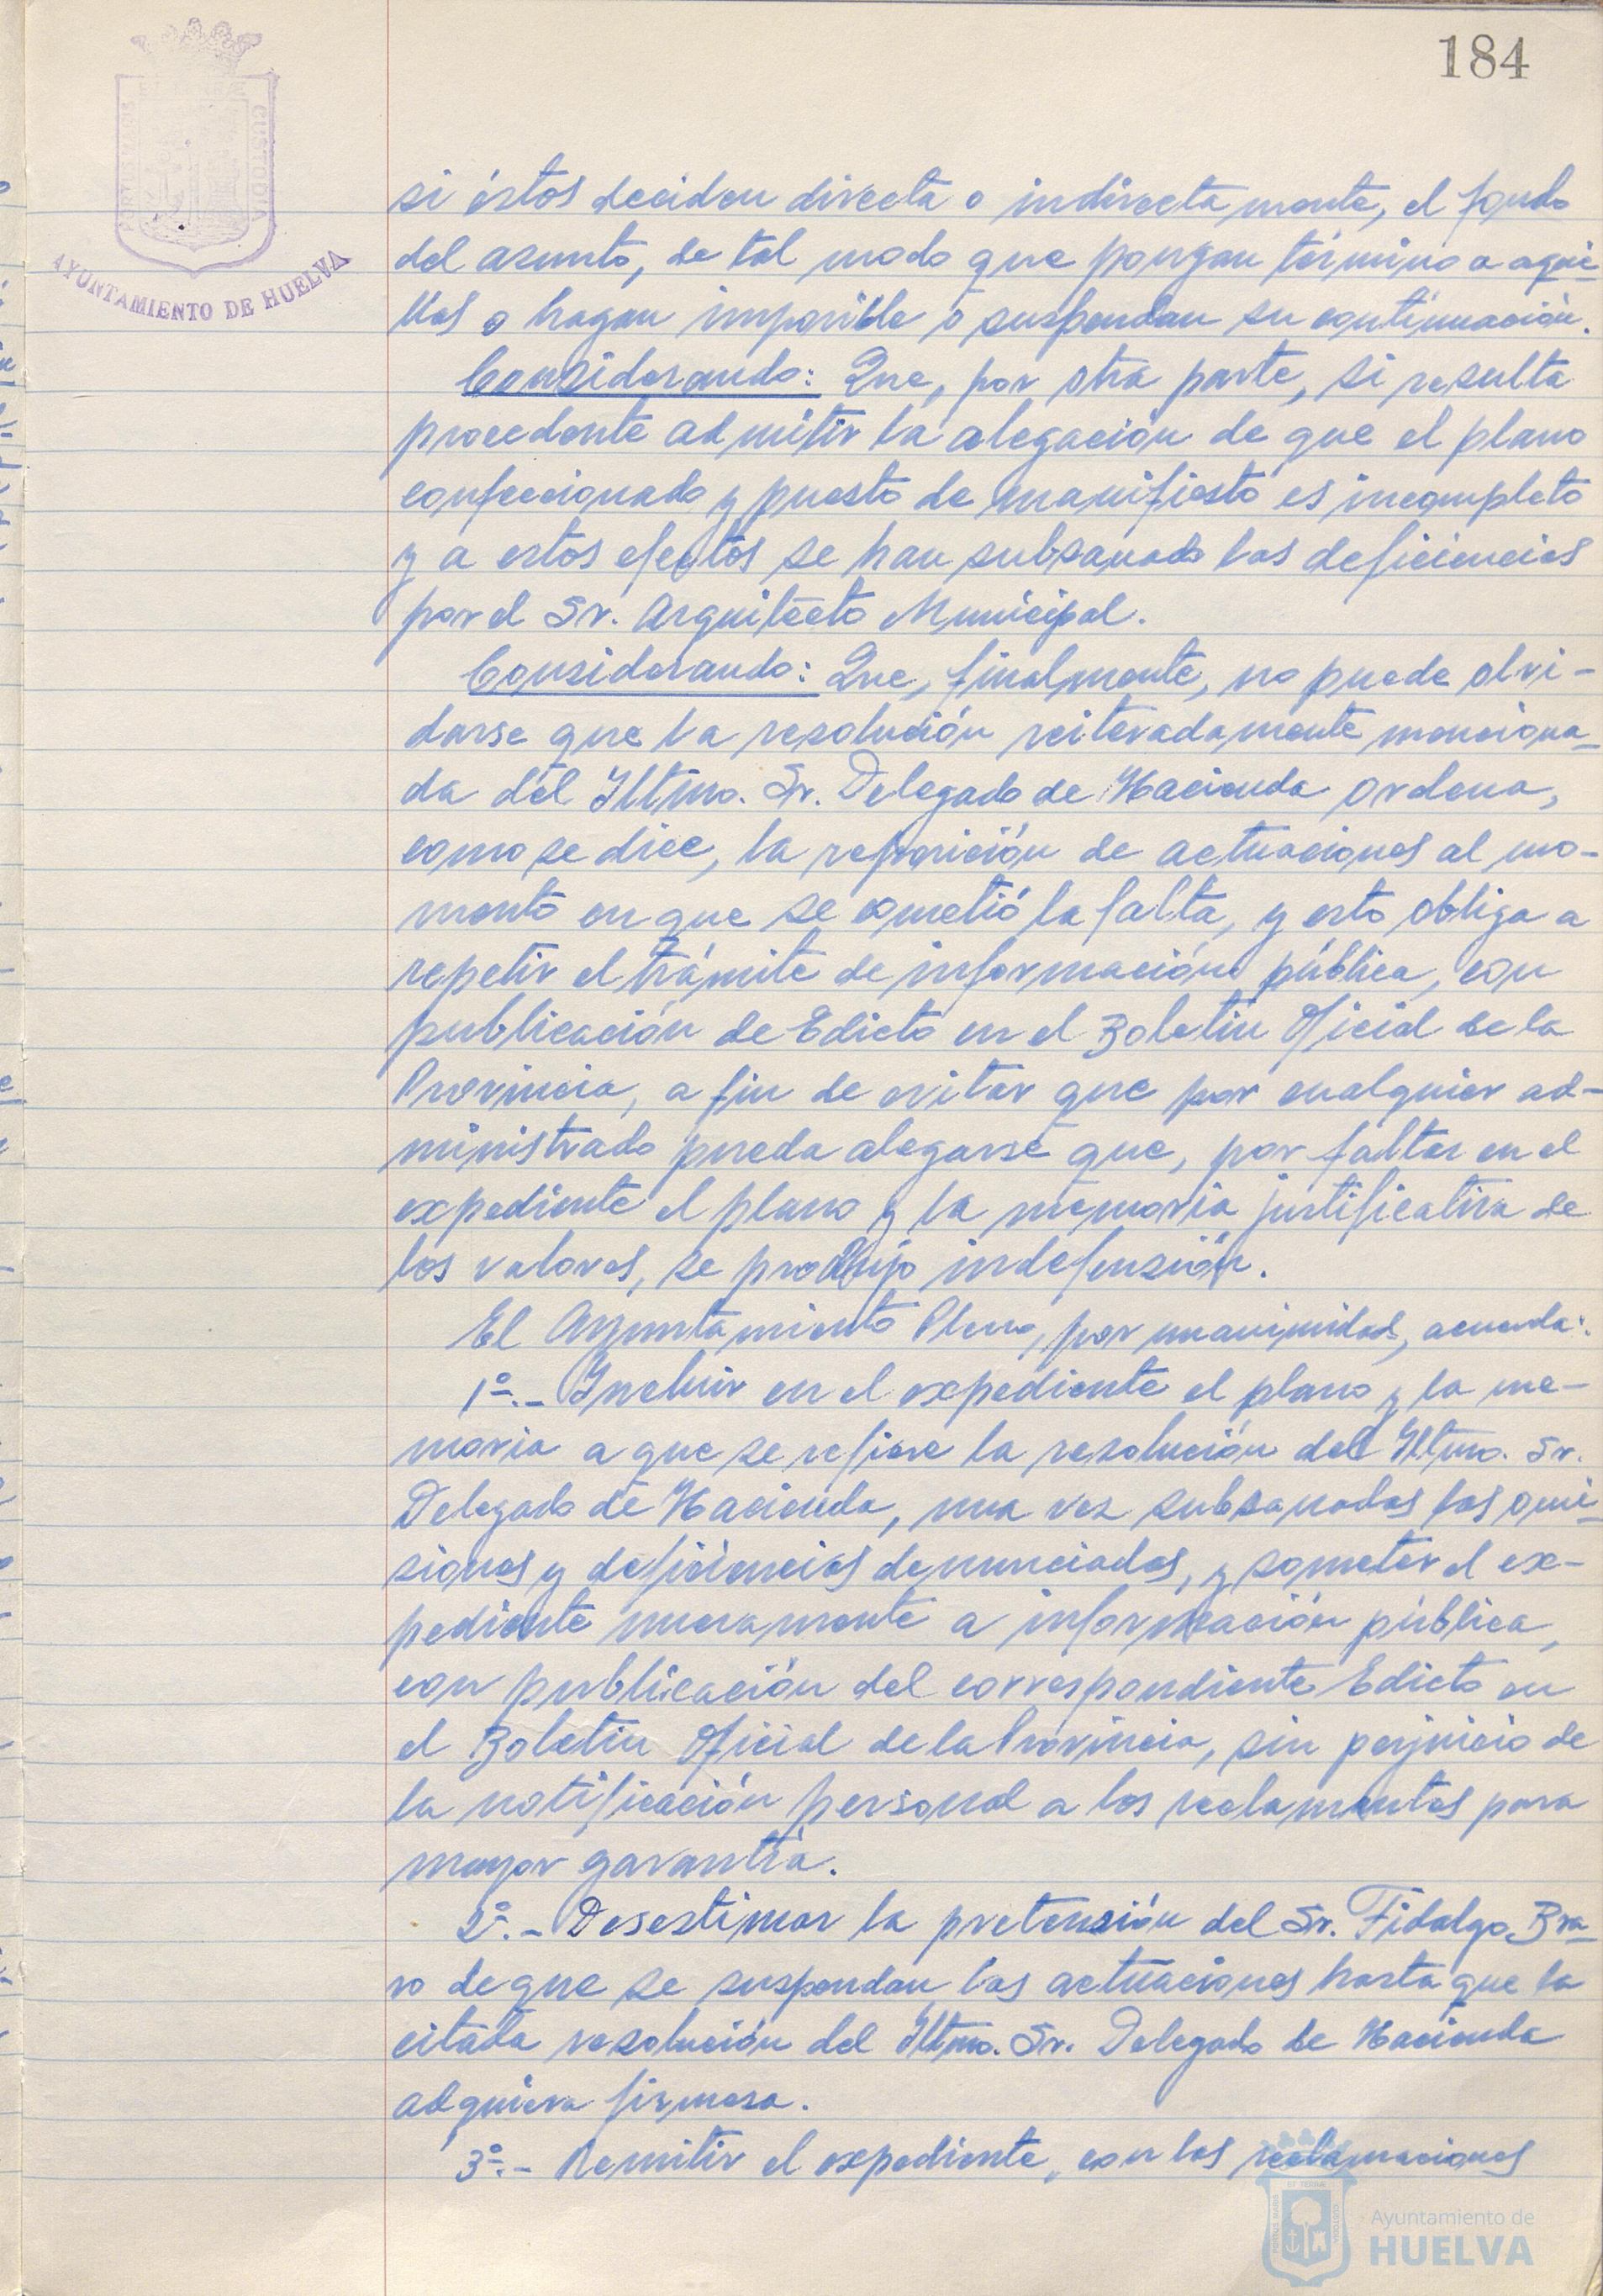 184
PORTUS MARIS ET TERRAE CUSTODIA
AYUNTAMIENTO DE HUELVA
si éstos deciden directa o indirectamente, el fondo
del asunto, de tal modo que pongan término a aque-
llas o hagan imposible o suspendan su continuación.
Considerando: Que, por otra parte, si resulta
procedente admitir la alegación de que el plano
confeccionado y puesto de manifiesto es incompleto
y a estos efectos se han subsanado las deficiencias
por el Sr. Arquitecto Municipal.
Considerando: Que, finalmente, no puede olvi-
darse que la resolución reiteradamente menciona-
da del Iltmo. Sr. Delegado de Hacienda ordena,
como se dice, la reposición de actuaciones al mo-
mento en que se cometió la falta, y esto obliga a
repetir el trámite de información pública, con
publicación de Edicto en el Boletín Oficial de la
Provincia, a fin de evitar que por cualquier ad-
ministrado pueda alegarse que, por faltar en el
expediente el plano y la memoria justificativa de
los valores, se produjo indefensión.
El Ayuntamiento Pleno, por unanimidad, acuerda:
1º.- Incluir en el expediente el plano y la me-
moria a que se refiere la resolución del Iltmo. Sr.
Delegado de Hacienda, una vez subsanadas las omi-
siones y deficiencias denunciadas, y someter el ex-
pediente nuevamente a información pública,
con publicación del correspondiente Edicto en
el Boletín Oficial de la Provincia, sin perjuicio de
la notificación personal a los reclamantes para
mayor garantía.
2º.- Desestimar la pretensión del Sr. Fidalgo Bra-
vo de que se suspendan las actuaciones hasta que la
citada resolución del Iltmo. Sr. Delegado de Hacienda
adquiera firmeza.
3º.- Remitir el expediente, con las reclamaciones
Ayuntamiento de
HUELVA